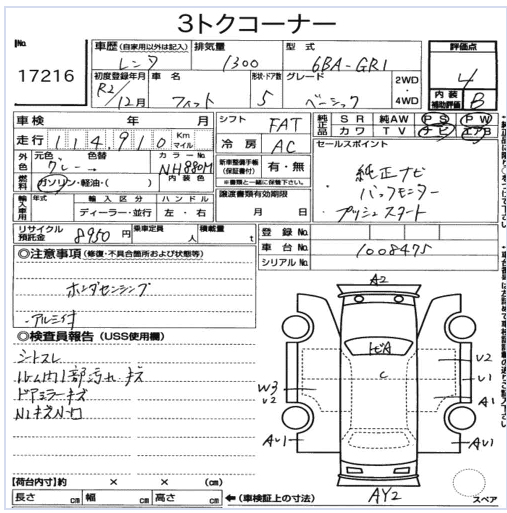 3トクコーナー
No. 17216
車歴(自家用以外は記入) 排気量 型式 評価点
レンタ 1300 6BA-GR1 4
初度登録年月 車名 形状・ドア数 グレード 2WD・4WD 内装補助評価
R2/12月 フィット 5 ベーシック B
車検 年 月 シフト FAT 純正品 SR 純AW PS PW
カワ TV ナビ エアB
走行 114,910 Km マイル 冷房 AC セールスポイント
外色 元色 色替 カラーNo. 新車整備手帳(保証書付) 有・無
グレー NH880M
燃料 ガソリン・軽油・( ) 内装色 ※書類と一緒に保管下さい。
純正ナビ
バックモニター
プッシュスタート
輸入車用 年式 輸入区分 ハンドル 譲渡書類有効期限
ディーラー・並行 左・右 月 日
リサイクル預託金 8950円 乗車定員 人 積載量 t 登録No.
車台No. 1008475
シリアルNo.
◎注意事項(修復・不具合箇所および状態等)
ホンダセンシング
・アルミ付
◎検査員報告(USS使用欄)
シートスレ
ルーム内1部汚れ・キズ
ドアミラーキズ
A2
ヒビA
C
U2
U1
A1
W3
U2
AU1
AU1
AY2
スペア
【荷台内寸】約 × × (cm)
長さ cm 幅 cm 高さ cm ←(車検証上の寸法)